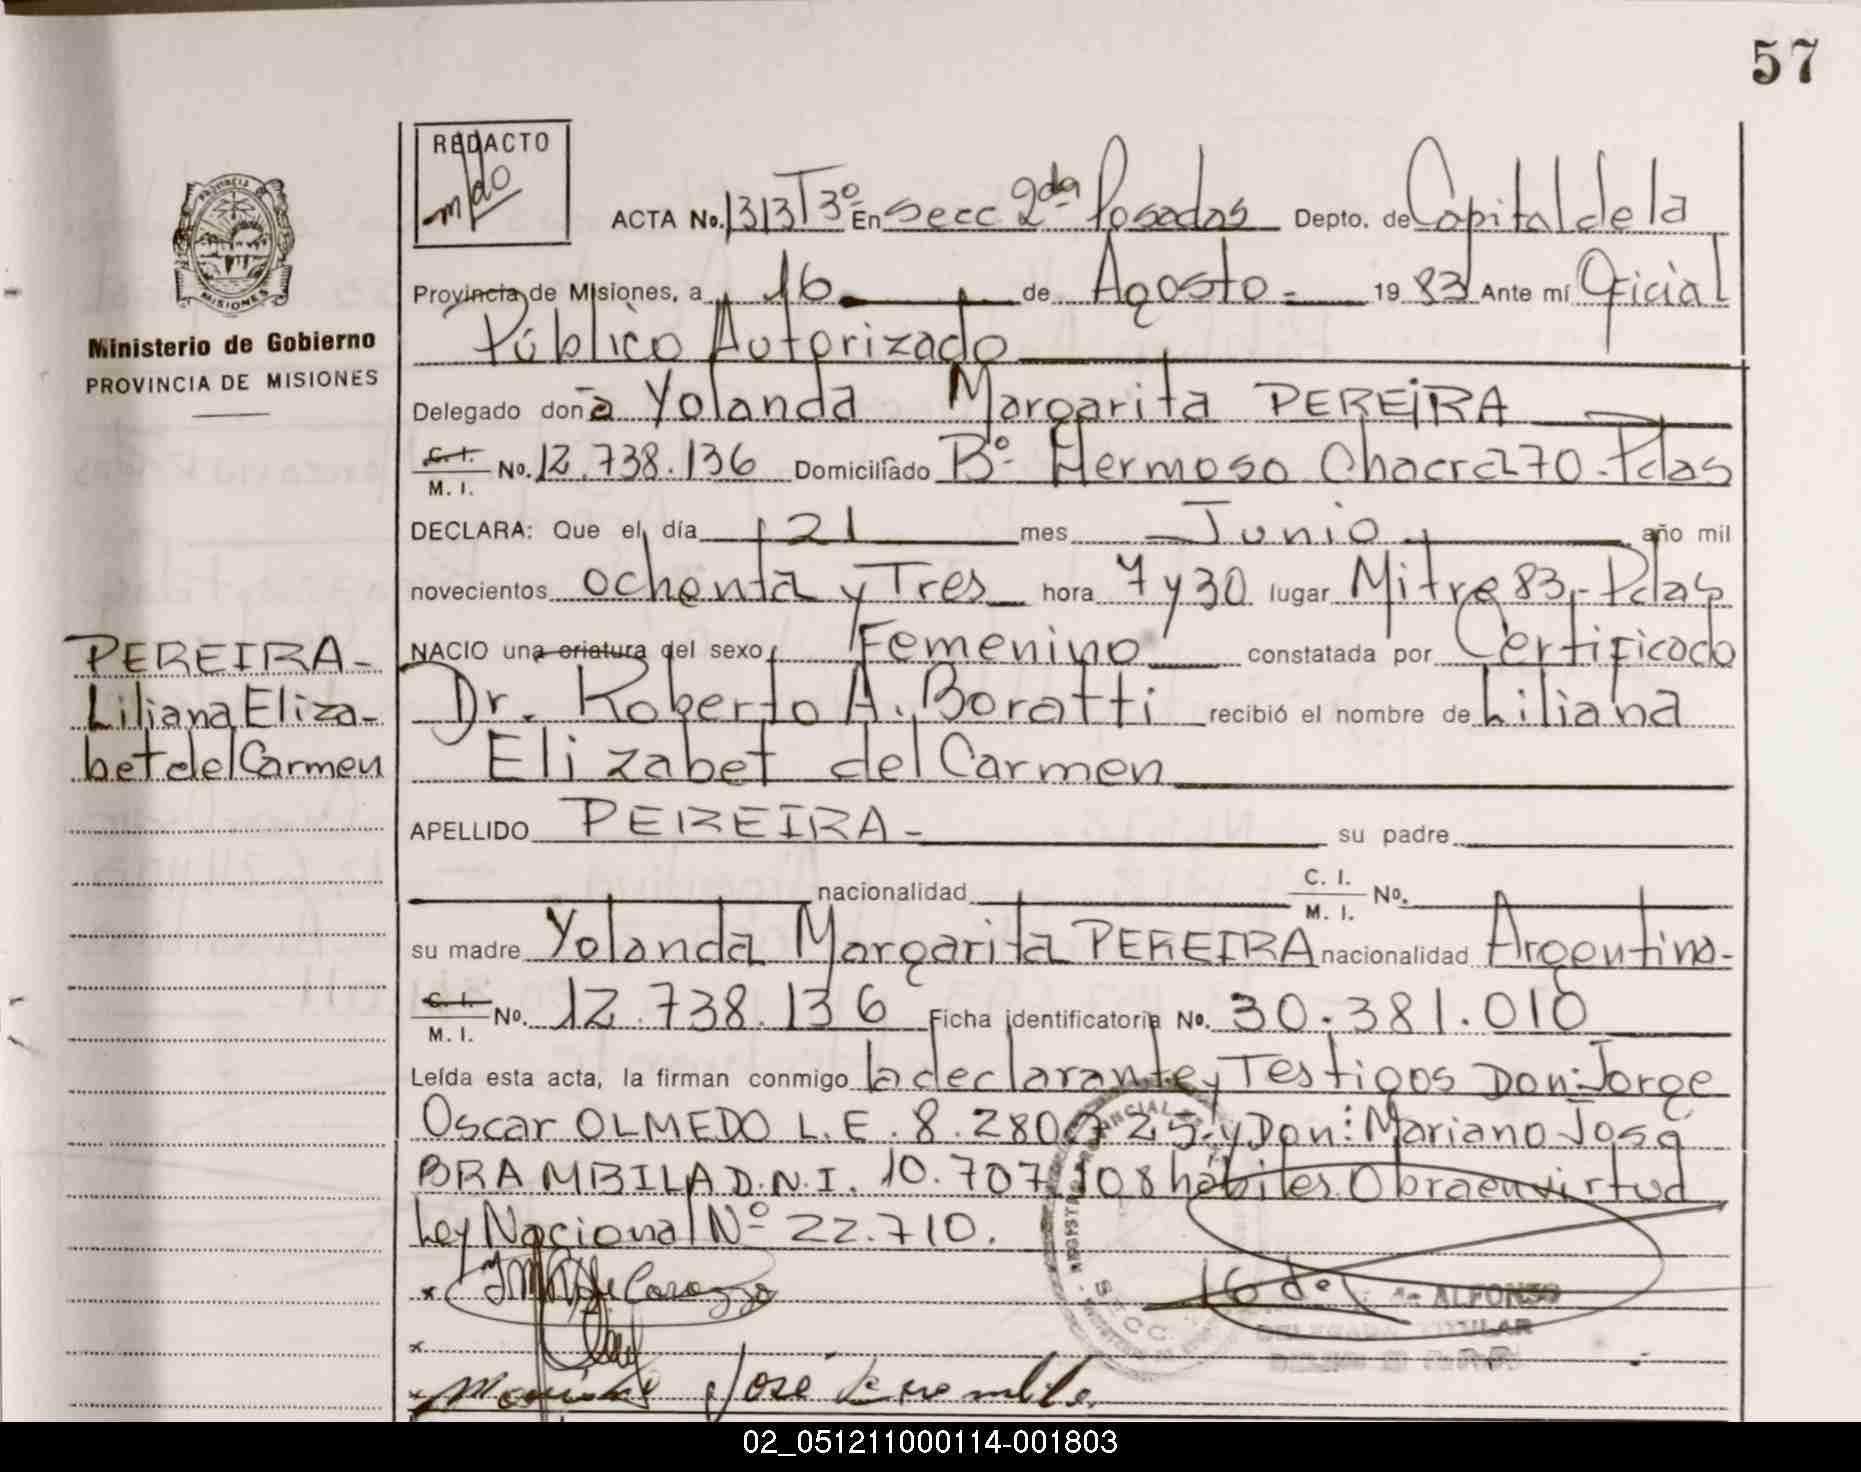 57
REDACTO
m/do
PROVINCIA
MISIONES
Ministerio de Gobierno
PROVINCIA DE MISIONES
ACTA No. 1313 T3º En Secc 2da Posadas Depto. de Capital de la
Provincia de Misiones, a 16 de Agosto - 19 83 Ante mí Oficial
Público Autorizado
Delegado don a Yolanda Margarita PEREIRA
C. I.
M. I. No. 12.738.136 Domiciliado Bº Hermoso Chacra 270 - Pdas
DECLARA: Que el día 21 mes Junio año mil
novecientos ochenta y Tres hora 7 y 30 lugar Mitre 83,- Pdas
NACIO una criatura del sexo Femenino constatada por Certificado
Dr. Roberto A. Boratti recibió el nombre de Liliana
Elizabet del Carmen
PEREIRA -
Liliana Eliza-
bet del Carmen
APELLIDO PEREIRA - su padre
nacionalidad C. I.
M. I. No.
su madre Yolanda Margarita PEREIRA nacionalidad Argentina -
C. I.
M. I. No. 12.738.136 Ficha identificatoria No. 30.381.010
Leída esta acta, la firman conmigo la declarante y Testigos Don: Jorge
Oscar OLMEDO L.E. 8.280.725.- y Don: Mariano José
BRAMBILA D.N.I. 10.707.108 hábiles. Obra en virtud
Ley Nacional Nº 22.710.
SECC.
ALFONSO
TITULAR
José
02_051211000114-001803